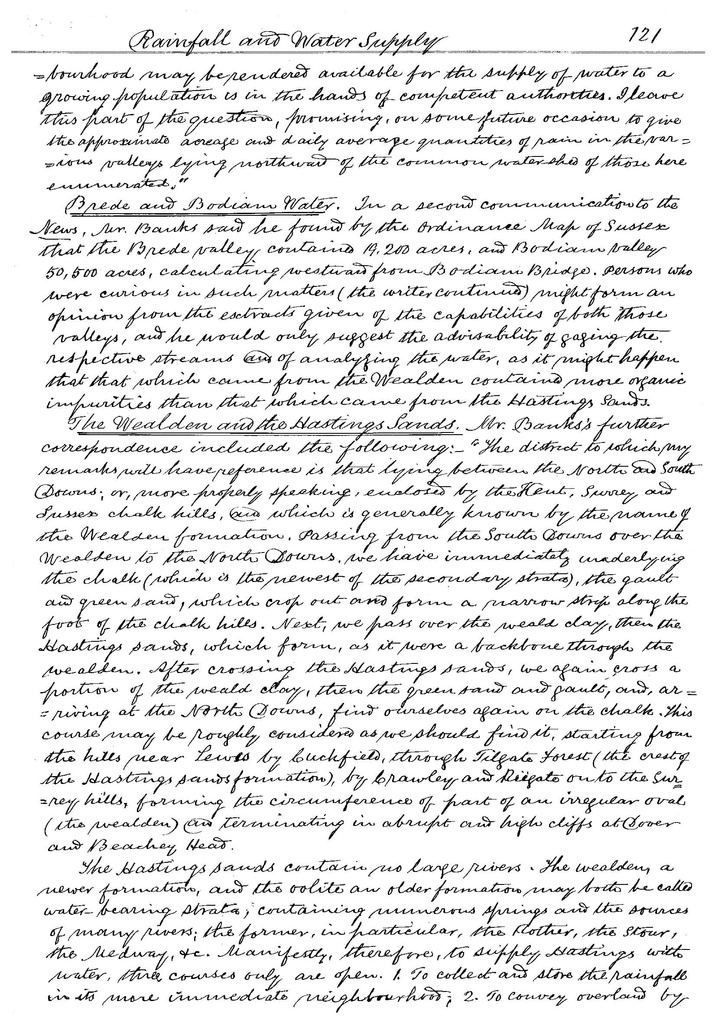 Rainfall and Water Supply 121
=bourhood may be rendered available for the supply of water to a
growing population is in the hands of competent authorities. I leave
this part of the question, promising, on some future occasion to give
the approximate acreage and daily average quantities of rain in the var=
=ious valleys lying northward of the common watershed of those here
enumerated."
Brede and Bodiam Water. In a second communication to the
News, Mr. Banks said he found by the Ordinance Map of Sussex
that the Brede valley contained 19,200 acres, and Bodiam valley
50,500 acres, calculating westward from Bodiam Bridge. Persons who
were curious in such matters (the writer continued) might form an
opinion from the exstracts given of the capabilities of both those
valleys, and he would only suggest the advisability of gaging the
respective streams and of analyzing the water, as it might happen
that that which came from the Wealden contained more organic
impurities than that which came from the Hastings Sands.
The Wealden and the Hastings Sands. Mr. Banks's further
correspondence included the following:- "The district to which my
remarks will have reference is that lying between the North and South
Downs; or, more properly speaking, enclosed by the Kent, Surrey and
Sussex chalk hills, and which is generally known by the name of
the Wealden formation. Passing from the South Downs over the
Wealden to the North Downs, we have immediately underlying
the chalk (which is the newest of the secondary strata), the gault
and green sand, which crop out and form a narrow strip along the
foot of the chalk hills. Next, we pass over the weald clay, then the
Hastings sands, which form, as it were a backbone through the
wealden. After crossing the Hastings sands, we again cross a
portion of the weald clay, then the green sand and gault, and, ar=
=riving at the North Downs, find ourselves again on the chalk. This
course may be roughly considered as we should find it, starting from
the hills near Lewes by Cuckfield, through Tilgate Forest (the crest of
the Hastings sands formation), by Crawley and Reigate onto the Sur=
=rey hills, forming the circumference of part of an irregular oval
(the wealden) and terminating in abrupt and high cliffs at Dover
and Beachey Head.
The Hastings sands contain no large rivers. The wealden, a
newer formation, and the oolite an older formation may both be called
water-bearing strata; containing numerous springs and the sources
of many rivers; the former, in particular, the Rother, the Stour,
the Medway, &c. Manifestly, therefore, to supply Hastings with
water, three courses only are open. 1. To collect and store the rainfall
in its more immediate neighbourhood; 2. To convey overland by